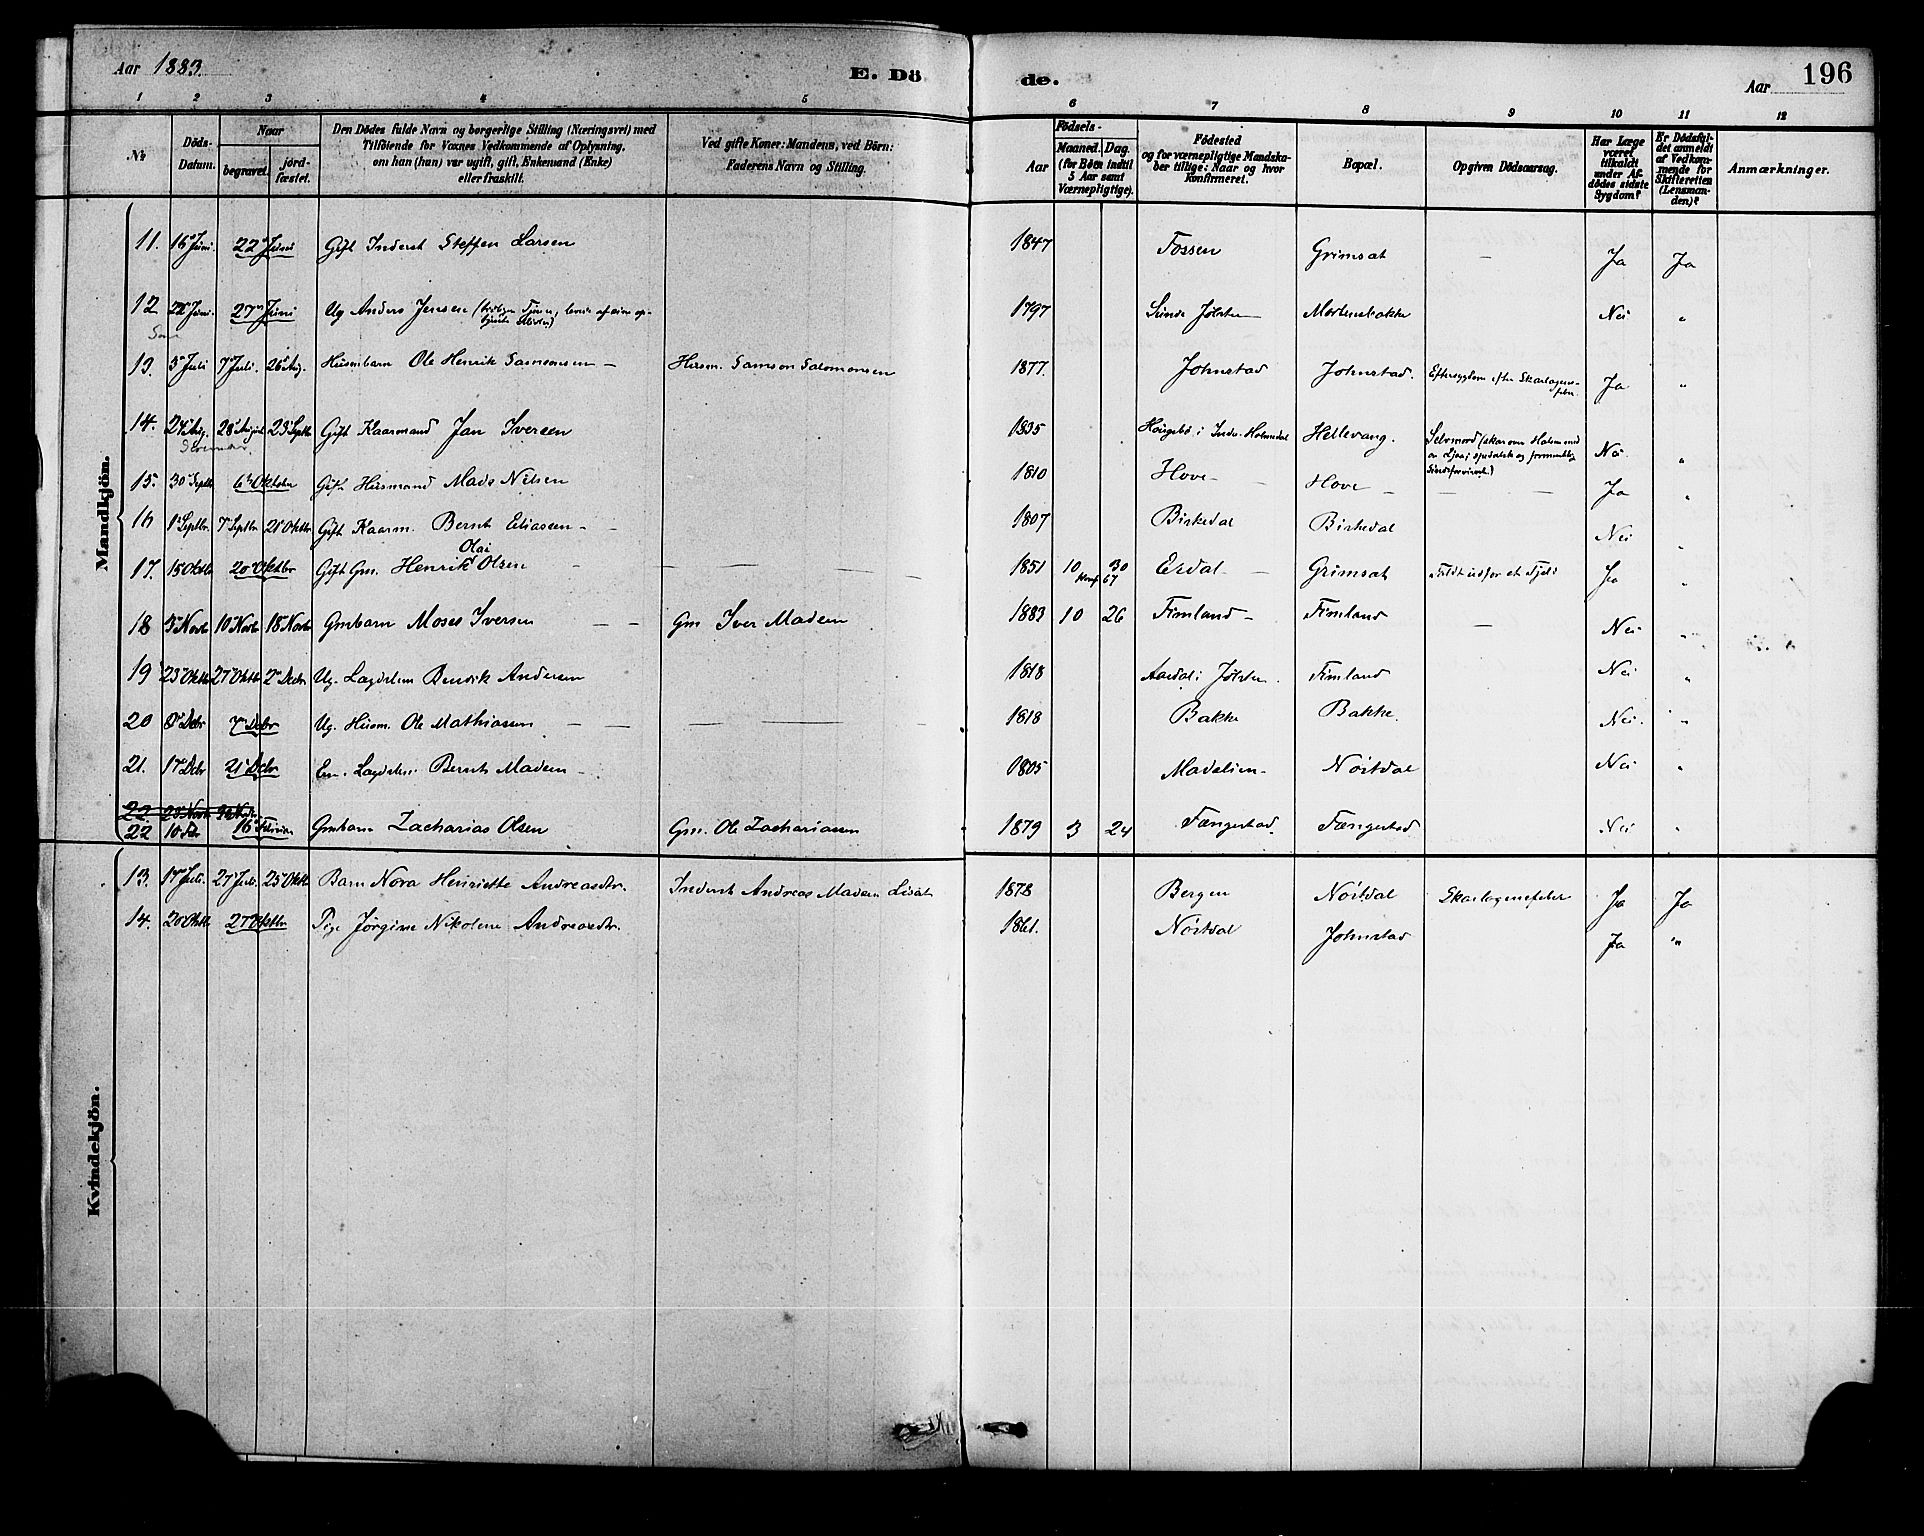 Aar 1883.
E. Dö
de.
Aar
196
1 2 3 4 5 6 7 8 9 10 11 12
No
Döds-
Datum.
Naar
begravet.
jord-
fæstet.
Den Dödes fulde Navn og borgerlige Stilling (Næringsvei) med
Tilföiende for Voxnes Vedkommende af Oplysning,
om han (hun) var ugift, gift, Enkemand (Enke)
eller fraskilt.
Ved gifte Koner: Mandens, ved Börn:
Faderens Navn og Stilling.
Födsels-
Aar
Maaned. Dag.
(for Börn indtil
5 Aar samt
Værnepligtige).
Födested
og for værnepligtige Mandska-
ber tillige: Naar og hvor
konfirmeret.
Bopæl.
Opgiven Dödsaarsag.
Har Læge
været
tilkaldt
under Af-
dödes sidste
Sygdom?
Er Dödsfal-
det anmeldt
af Vedkom-
mende for
Skifteretten
(Lensman-
den)?
Anmærkninger.
Mandkjön.
11. 16 Juni. 22 Juni Gift Inderst Steffen Larsen 1847 Fossen Grimsat - Ja Ja
12 22 Juni. 27 Juni Ug Anders Jensen 1797 Sunde Jølster Mortensbakke Nei "
13. 3 Juli 7 Juli. 26 Aug. Husmbarn Ole Henrik Samsonsen - Husm. Samson Salomonsen 1877. Johnstad Johnstad. Eftersygdom efter Skarlagens-
feber Ja "
14. 24 Aug. 28 August 23 Septb Gift Kaarmand Jan Iversen 1835 Hougebø i Indre Holmedal Hellevang. Selvmord (skar over Halsen med
en Ljaa; Nei "
15. 30 Septb 6 Oktober Gift Husmand Mads Nilsen 1810 Hove - Hove - Ja "
16 1 Septbr 7 Septbr 21 Oktbr Gift Kaarm. Bernt Eliassen - 1807 Birkedal Birkedal Nei "
17. 15 Oktbr 20 Oktbr Gift Gm. Henrik Olai Olsen 1851 10 30 Erdal - Grimsat Faldt udfor et Fjeld Ja "
Konf 67
18 3 Novbr 10 Novbr 18 Novbr Gmbarn Moses Iversen - - Gm Iver Madsen 1883 10 26 Fimland - Fimland - Nei "
19 23 Oktbr 27 Oktbr 2 Decbr Ug. Lægdslem Bendik Andersen 1818 Aardal i Jølster. Fimland Nei "
20 Decbr 7 Decbr Ug. Husm. Ole Mathiassen - - 1818 Bakke Bakke. Nei. "
21. 17 Decbr 21 Decbr Em. Lægdslem Bernt Madsen - 1805 Madslien - Nøstdal Nei "
22
22 10 16 Februar Gmbarn Zacharias Olsen Gm. Ole Zachariassen 1879 3 24 Fængestad. Fængestad Nei "
Kvindekjön.
13. 17 Juli. 21 Juli. 25 Oktbr Barn Nora Henriette Andreasdtr. Inderst Andreas Madsen 1878 Bergen Nøstdal Skarlagensfeber Ja Ja
14. 20 Oktbr 27 Oktbr Pige Jørgine Nikoline Andreasdtr. 1861. Nøstdal Johnstad Ja "